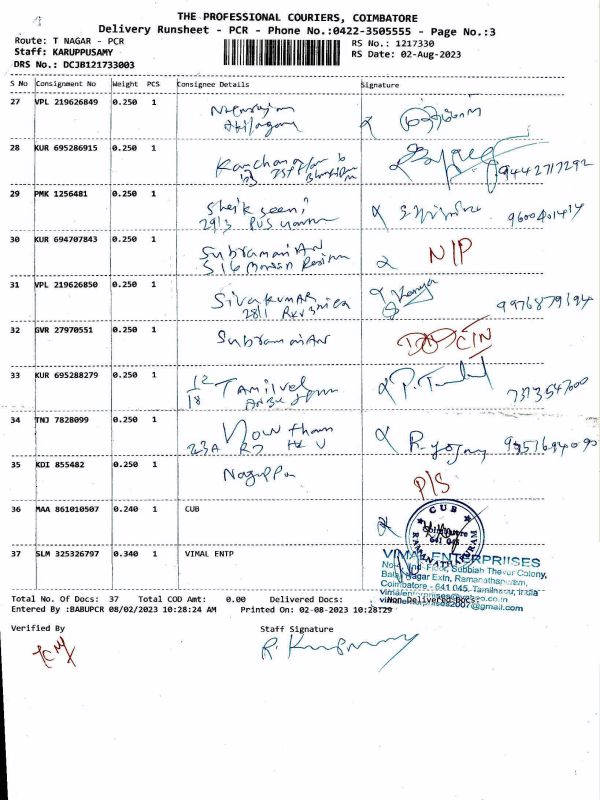 THE PROFESSIONAL COURIERS, COIMBATORE
Delivery Runsheet - PCR - Phone No.:0422-3505555 - Page No.:3
Route: T NAGAR - PCR
RS No.: 1217330
Staff: KARUPPUSAMY
RS Date: 02-Aug-2023
DRS No.: DCJB121733003
S No Consignment No Weight PCS Consignee Details Signature
27 VPL 219626849 0.250 1
28 KUR 695286915 0.250 1 Kanchana
9442717292
29 PMK 1256481 0.250 1 Sheik seeni
29/3
9600401414
30 KUR 694707843 0.250 1 SubramaniAN N/P
31 VPL 219626850 0.250 1 SivakumAR
28/1
9976879194
32 GVR 27970551 0.250 1 SubramaniAN CIN
33 KUR 695288279 0.250 1 12/18 Tamilvel
34 TNJ 7828099 0.250 1 Nowtham
23A
35 KDI 855482 0.250 1 Nagappa P/S
36 MAA 861010507 0.240 1 CUB
CUB
Coimbatore
641 045
RAMANATHAPURAM
37 SLM 325326797 0.340 1 VIMAL ENTP
VIMAL ENTERPRIISES
Floor, Subbiah Thevar Colony,
Balaji Nagar Extn, Ramanathapuram,
Coimbatore - 641 045, Tamilnadu, India
vimalenterprises@yahoo.co.in
vimalenterprises2007@gmail.com
Total No. Of Docs: 37 Total COD Amt: 0.00 Delivered Docs: Non-Delivered Docs:
Entered By :BABUPCR 08/02/2023 10:28:24 AM Printed On: 02-08-2023 10:28:29
Verified By
Staff Signature